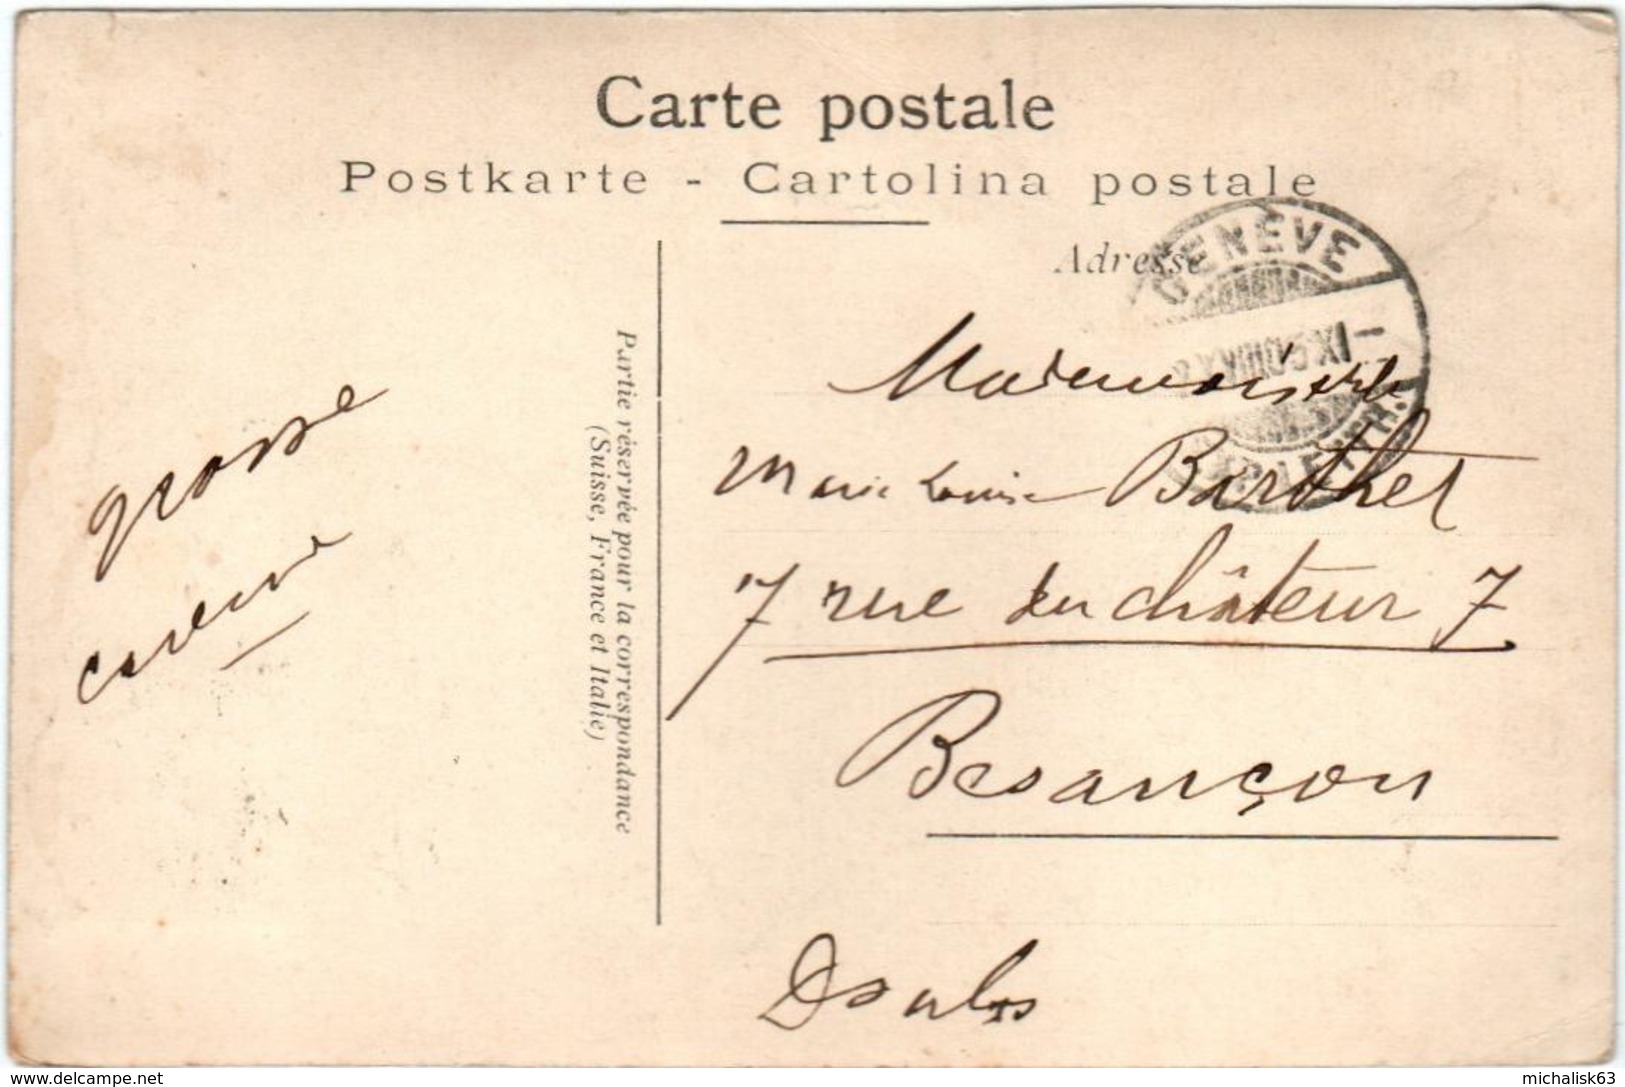 Carte postale
Postkarte - Cartolina postale
Adresse
GENÈVE
Partie réservée pour la correspondance
(Suisse, France et Italie)
grosse
Mademoiselle
Marie Louise Barthet
7 rue du château 7
Besançon
Doubs
www.delcampe.net
michalisk63